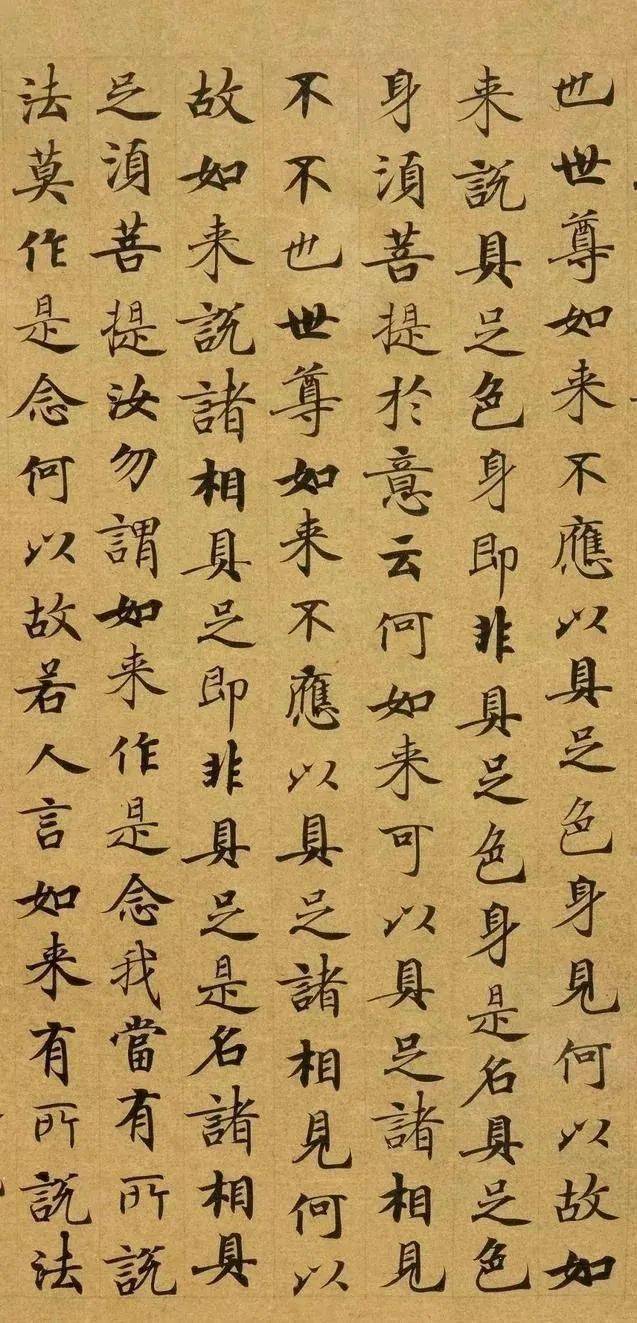 也世尊如来不應以具足色身見何以故如
来說具足色身即非具足色身是名具足色
身須菩提於意云何如来可以具足諸相見
不不也世尊如来不應以具足諸相見何以
故如来說諸相具足即非具足是名諸相具
足須菩提汝勿謂如来作是念我當有所說
法莫作是念何以故若人言如来有所說法